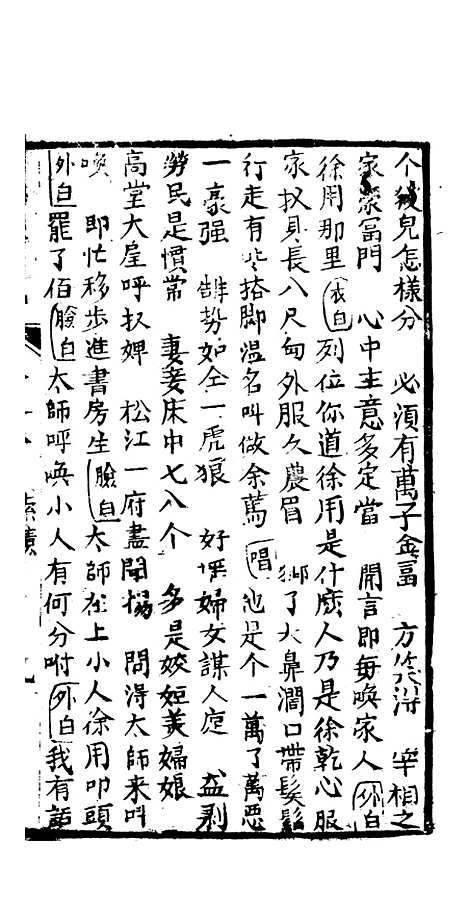 个後兒怎樣分 必須有萬子金畐 方笑得 宰相之
家豪冨門 心中主意多定當 開言即每喚家人 外白
徐用那里 衣白 列位你道徐用是什庅人乃是徐乾心服
家奴身長八尺向外服久農眉 獅了大鼻濶口帶髮鬍
行走有些搭脚温名叫做余蔫 唱 他是个一萬了萬惡
一豪强 雠势如仝一虎狼 好 婦女謀人 益剥
勞民是慣常 妻妾床中七八个 多是姣姮美婦娘
高堂大屋呼奴婢 松江一府盡聞揚 問淂太師来呌
喚 即忙移步進書房生 臉白 太師在上小人徐用叩頭
外白 罷了佰 臉白 太師呼喚小人有何分咐 外白 我有話